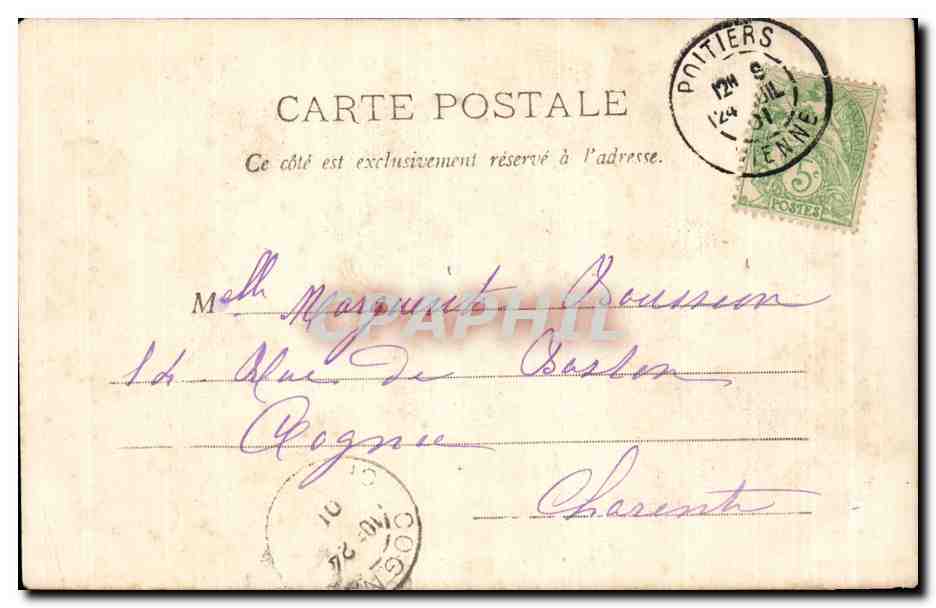 POITIERS
12H 9
24 JUIL
01
VIENNE
5c
POSTES
CARTE POSTALE
Ce côté est exclusivement réservé à l'adresse.
Melle Marguerite
CPAPHIL
14 Rue de Boston
Cognac
Charente
COGN
24
01